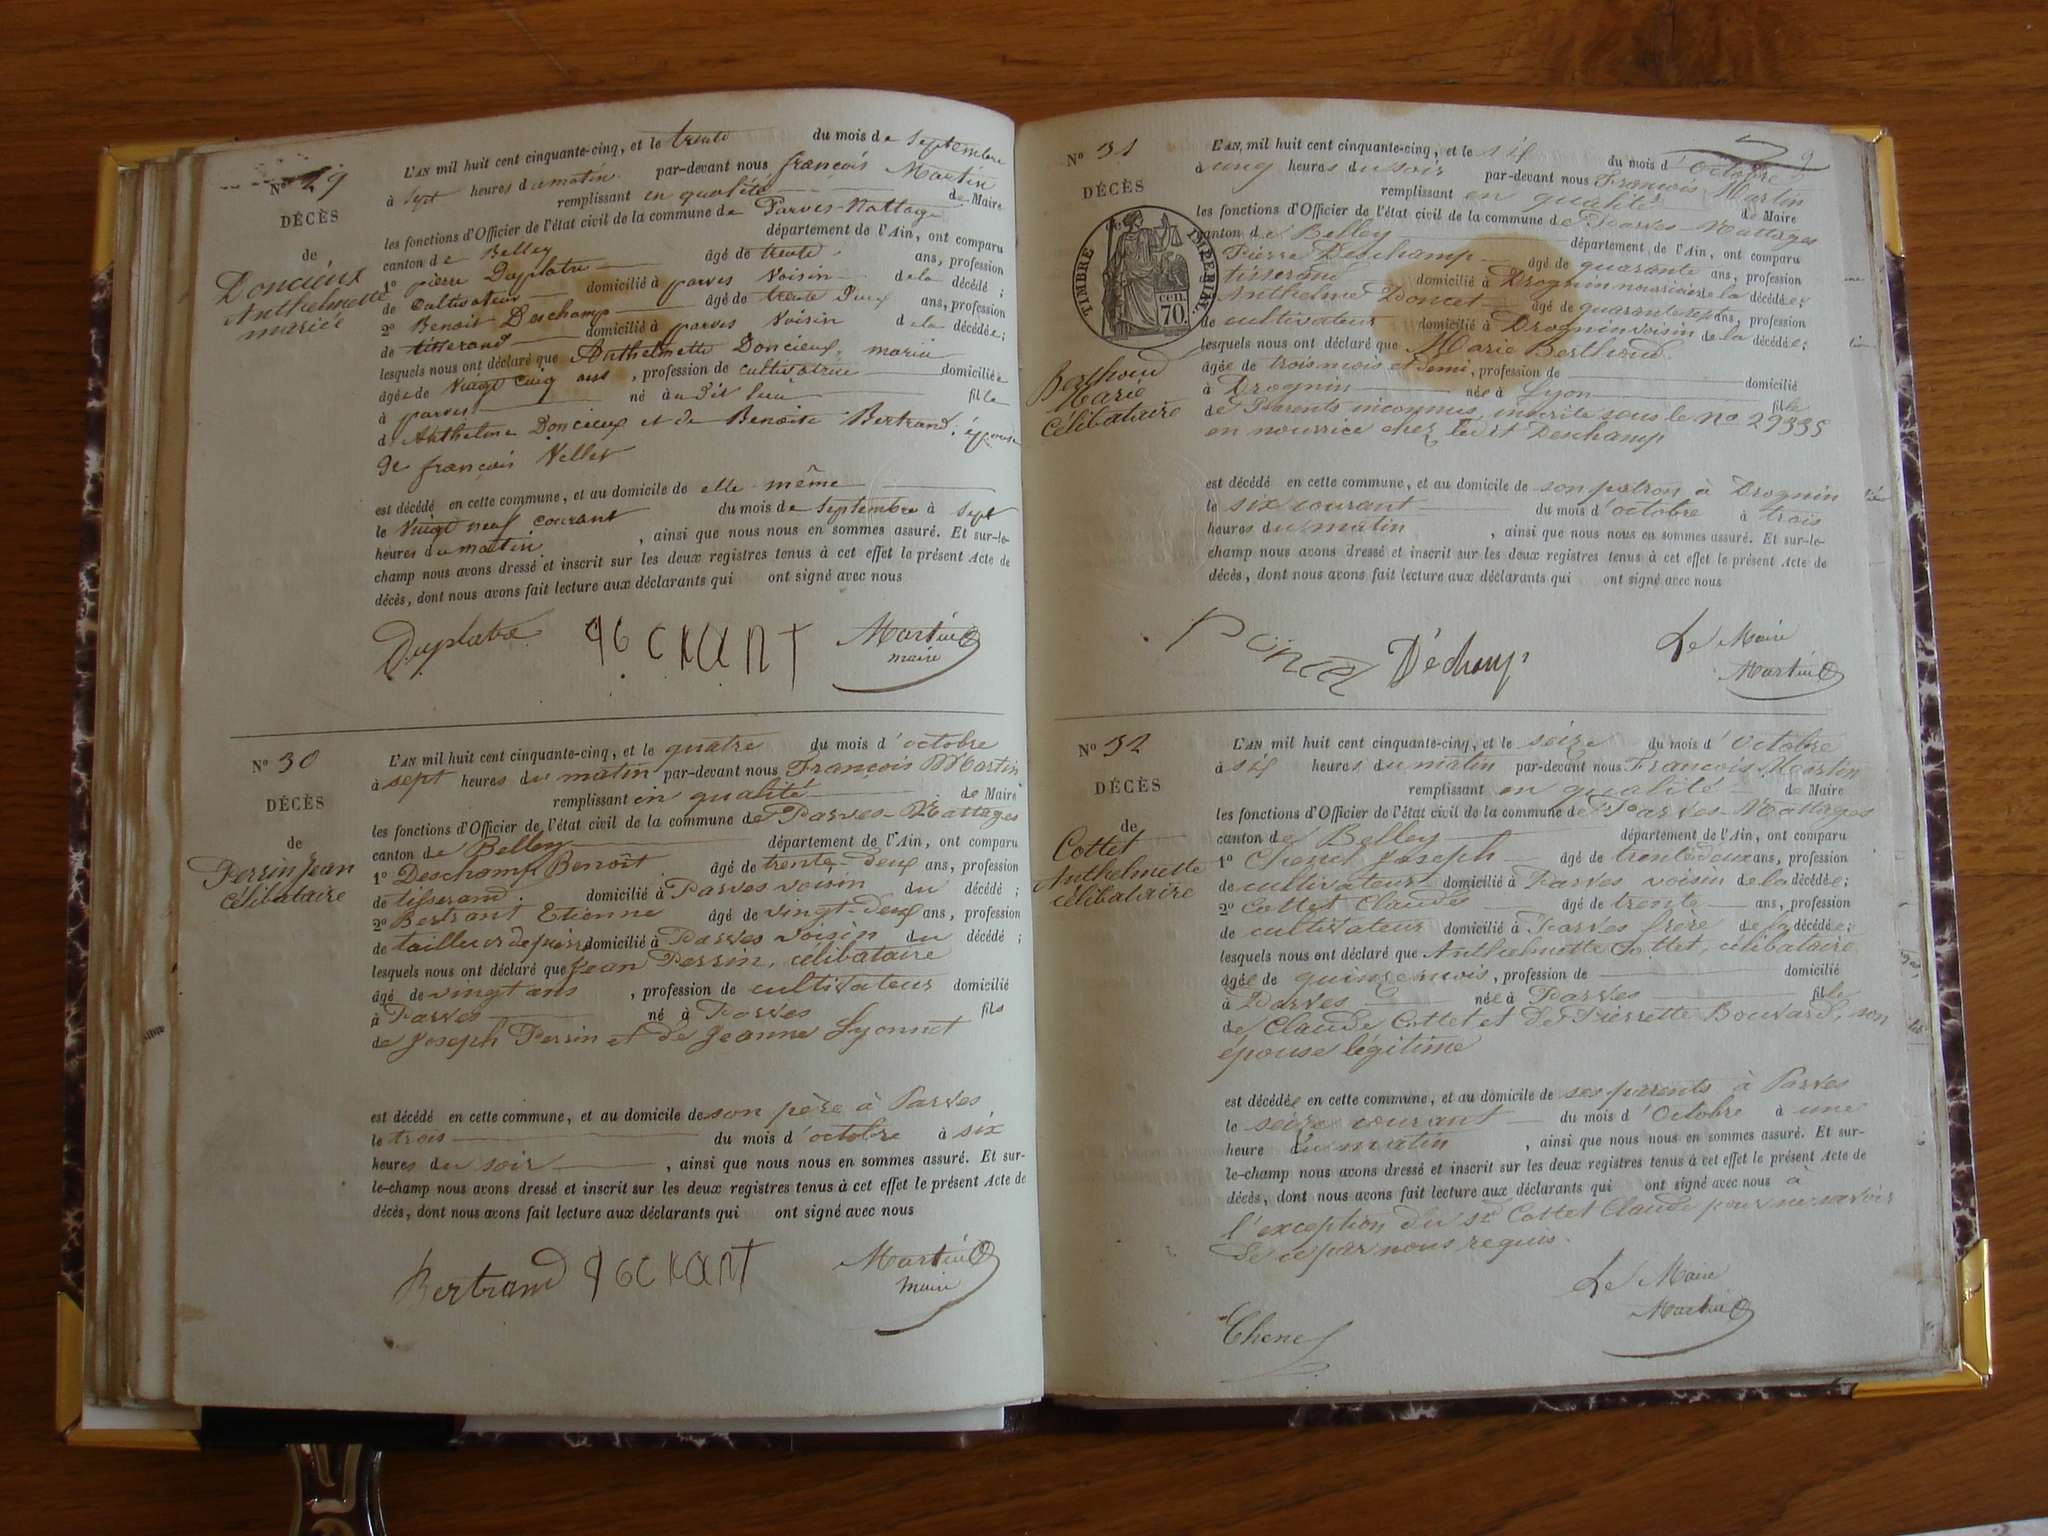 Nº 29
DÉCÈS
de
Doncieux
Anthelmette
mariée
L'AN mil huit cent cinquante-cinq, et le trente du mois de septembre
à sept heures du matin par-devant nous françois Martin
remplissant en qualité de Maire
les fonctions d'Officier de l'état civil de la commune de Parves-Nattage
canton de Belley département de l'Ain, ont comparu
1º pierre Duplatre âgé de trente ans, profession
de Cultivateur domicilié à parves Voisin de la décédé ;
2º Benoit Deschamp âgé de trente Deux ans, profession
de tisserand domicilié à parves Voisin de la décédée;
lesquels nous ont déclaré que Anthelmette Doncieux, mariée
âgée de Vingt cinq ans, profession de cultivatrice domiciliée
à parves né au dit lieu fille
de Anthelme Doncieux et de Benoite Bertrand, épouse
de françois Vellet
est décédé en cette commune, et au domicile de elle même
le Vingt neuf courant du mois de septembre à sept
heures du matin, ainsi que nous nous en sommes assuré. Et sur-le-
champ nous avons dressé et inscrit sur les deux registres tenus à cet effet le présent Acte de
décès, dont nous avons fait lecture aux déclarants qui ont signé avec nous
Duplatre Martin
maire
Nº 30
DÉCÈS
de
Perrin Jean
célibataire
L'AN mil huit cent cinquante-cinq, et le quatre du mois d'octobre
à sept heures du matin par-devant nous François Martin
remplissant en qualité de Maire
les fonctions d'Officier de l'état civil de la commune de Parves-Nattages
canton de Belley département de l'Ain, ont comparu
1º Deschamp Benoît âgé de trente-deux ans, profession
de tisserand domicilié à Parves voisin du décédé ;
2º Bertrant Etienne âgé de vingt-deux ans, profession
de tailleur de pierre domicilié à Parves voisin du décédé ;
lesquels nous ont déclaré que Jean Perrin, célibataire
âgé de vingt ans, profession de cultivateur domicilié
à Parves né à Parves fils
de Joseph Perrin et de Jeanne Lyonnet
est décédé en cette commune, et au domicile de son père à Parves
le trois du mois d'octobre à six
heures du soir, ainsi que nous nous en sommes assuré. Et sur-
le-champ nous avons dressé et inscrit sur les deux registres tenus à cet effet le présent Acte de
décès, dont nous avons fait lecture aux déclarants qui ont signé avec nous
Bertrand Martin
maire
9
Nº 31
DÉCÈS
de
TIMBRE IMPÉRIAL
70 cen.
Berthoud
Marie
célibataire
L'AN mil huit cent cinquante-cinq, et le six du mois d'Octobre
à cinq heures du soir par-devant nous François Martin
remplissant en qualité de Maire
les fonctions d'Officier de l'état civil de la commune de Parves-Nattages
canton de Belley département de l'Ain, ont comparu
Pierre Deschamp âgé de quarante ans, profession
tisserand domicilié à Drognin nourricier de la décédée;
Anthelme Doncet âgé de quarante sept ans, profession
de cultivateur domicilié à Drognin voisin de la décédée;
lesquels nous ont déclaré que Marie Berthoud
âgée de trois mois et demi, profession de domicilié
à Drognin née à Lyon fille
de Parents inconnus, inscrite sous le no 29335
en nourrice chez ledit Deschamp
est décédé en cette commune, et au domicile de son patron à Drognin
le six courant du mois d'octobre à trois
heures du matin, ainsi que nous nous en sommes assuré. Et sur-le-
champ nous avons dressé et inscrit sur les deux registres tenus à cet effet le présent Acte de
décès, dont nous avons fait lecture aux déclarants qui ont signé avec nous
Déchamp Le Maire
Martin
Nº 32
DÉCÈS
de
Cottet
Anthelmette
célibataire
L'AN mil huit cent cinquante-cinq, et le seize du mois d'Octobre
à six heures du matin par-devant nous François Martin
remplissant en qualité de Maire
les fonctions d'Officier de l'état civil de la commune de Parves-Nattages
canton de Belley département de l'Ain, ont comparu
1º Chenet Joseph âgé de trente deux ans, profession
de cultivateur domicilié à Parves voisin de la décédée;
2º Cottet Claude âgé de trente ans, profession
de cultivateur domicilié à Parves frère de la décédée;
lesquels nous ont déclaré que Anthelmette Cottet, célibataire
âgée de quinze mois, profession de domicilié
à Parves née à Parves fille
de Claude Cottet et De Pierrette Bouvard, son
épouse légitime
est décédée en cette commune, et au domicile de ses parents à Parves
le seize courant du mois d'Octobre à une
heure du matin, ainsi que nous nous en sommes assuré. Et sur-
le-champ nous avons dressé et inscrit sur les deux registres tenus à cet effet le présent Acte de
décès, dont nous avons fait lecture aux déclarants qui ont signé avec nous à
l'exception du sr Cottet Claude pour ne savoir
de ce par nous requis.
Le Maire
Martin
Chenet